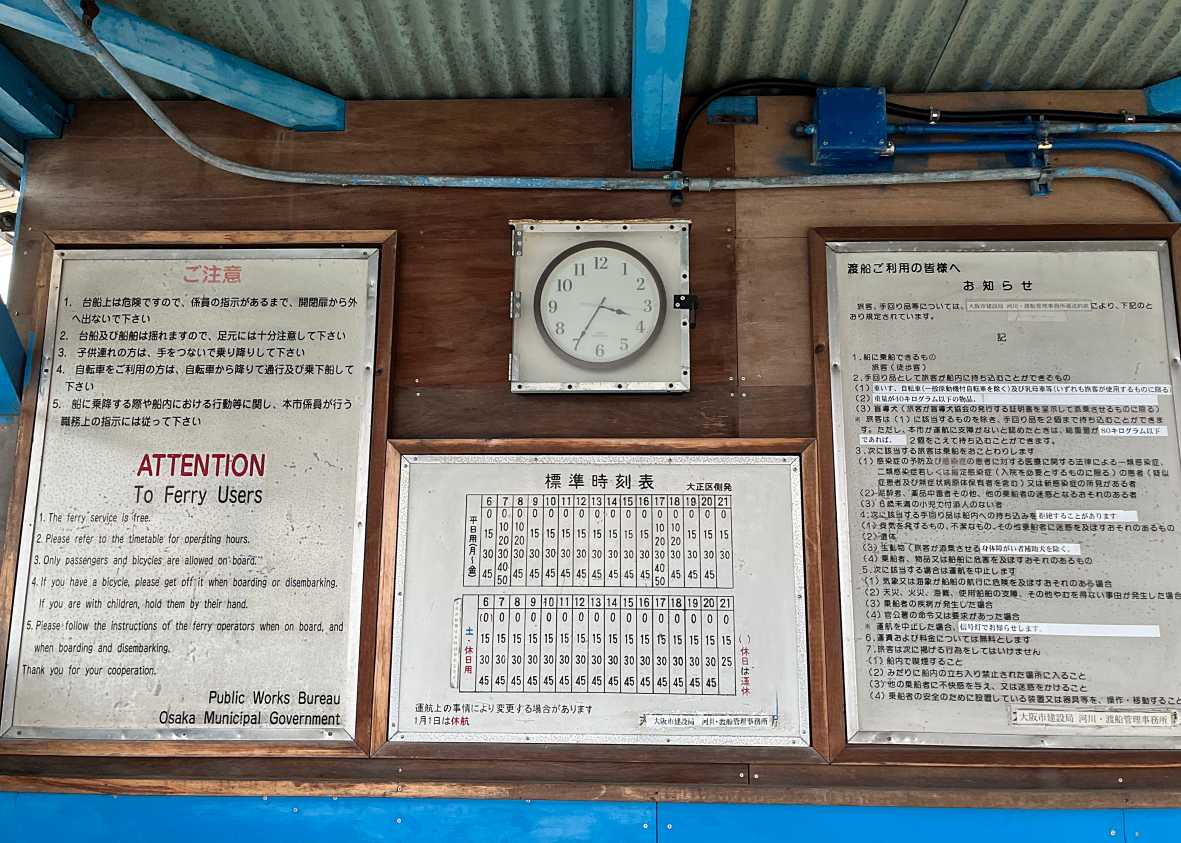 ご注意
1. 台船上は危険ですので、係員の指示があるまで、開閉扉から外
へ出ないで下さい
2. 台船及び船舶は揺れますので、足元には十分注意して下さい
3. 子供連れの方は、手をつないで乗り降りして下さい
4. 自転車をご利用の方は、自転車から降りて通行及び乗下船して
下さい
5. 船に乗降する際や船内における行動等に関し、本市係員が行う
職務上の指示には従って下さい
ATTENTION
To Ferry Users
1. The ferry service is free.
2. Please refer to the timetable for operating hours.
3. Only passengers and bicycles are allowed on board.
4. If you have a bicycle, please get off it when boarding or disembarking.
If you are with children, hold them by their hand.
5. Please follow the instructions of the ferry operators when on board, and
when boarding and disembarking.
Thank you for your cooperation.
Public Works Bureau
Osaka Municipal Government
12 1 2 3 4 5 6 7 8 9 10 11
標準時刻表
大正区側発
平日用(月〜金)
6 7 8 9 10 11 12 13 14 15 16 17 18 19 20 21
0 0 0 0 0 0 0 0 0 0 0 0 0 0 0 0
10 10 10
15 20 20 15 15 15 15 15 15 15 15 20 15 15 15 15
30 30 30 30 30 30 30 30 30 30 30 30 30 30 30 30
45 40 45 45 45 45 45 45 45 45 45 40 45 45 45
50 50
土・休日用
6 7 8 9 10 11 12 13 14 15 16 17 18 19 20 21
(0) 0 0 0 0 0 0 0 0 0 0 0 0 0 0 0
15 15 15 15 15 15 15 15 15 15 15 15 15 15 15 15
30 30 30 30 30 30 30 30 30 30 30 30 30 30 30 25
45 45 45 45 45 45 45 45 45 45 45 45 45 45 45
( )休日は運休
運航上の事情により変更する場合があります
1月1日は休航
大阪市建設局 河川・渡船管理事務所
渡船ご利用の皆様へ
お知らせ
旅客、手回り品等については、大阪市建設局 河川・渡船管理事務所運送約款により、下記のと
おり規定されています。
記
1.船に乗船できるもの
旅客(徒歩客)
2.手回り品として旅客が船内に持ち込むことができもの
(1)車いす、自転車(一般原動機付自転車を除く)及び乳母車等(いずれも旅客が使用するものに限る)
(2)重量が40キログラム以下の物品。
(3)盲導犬(旅客が盲導犬協会の発行する証明書を呈示して添乗させるものに限る)
※ 旅客は(1)に該当するものを除き、手回り品を2個まで持ち込むことができま
す。ただし、本市が運航に支障がないと認めたときは、総重量が80キログラム以下
であれば、2個をこえて持ち込むことができます。
3.次に該当する旅客は乗船をおことわりします
(1)感染症の予防及び感染症の患者に対する医療に関する法律による一類感染症、
二類感染症若しくは指定感染症(入院を必要とするものに限る)の患者(疑似
症患者及び無症状病原体保有者を含む)又は新感染症の所見がある者
(2)泥酔者、薬品中毒者その他、他の乗船者の迷惑となるおそれのある者
(3)6歳未満の小児で付添人のない者
4.次に該当する手回り品は船内への持ち込みを拒絶することがあります
(1)臭気を発するもの、不潔なもの、その他乗船者に迷惑を及ぼすおそれのあるもの
(2)遺体
(3)生動物(旅客が添乗させる身体障がい者補助犬を除く。
(4)乗船者、物品又は船舶に危害を及ぼすおそれのあるもの
5.次に該当する場合は運航を中止します
(1)気象又は海象が船舶の航行に危険を及ぼすおそれのある場合
(2)天災、火災、海難、使用船舶の支障、その他やむを得ない事由が発生した場合
(3)乗船者の疾病が発生した場合
(4)官公署の命令又は要求があった場合
※ 運航を中止した場合、信号灯でお知らせします。
6.運賃および料金については無料とします
7.旅客は次に掲げる行為をしてはいけません
(1)船内で喫煙すること
(2)みだりに船内の立ち入り禁止された場所に入ること
(3)他の乗船者に不快感を与え、又は迷惑をかけること
(4)乗船者の安全のために設置している装置又は器具等を、操作・移動すること
大阪市建設局 河川・渡船管理事務所